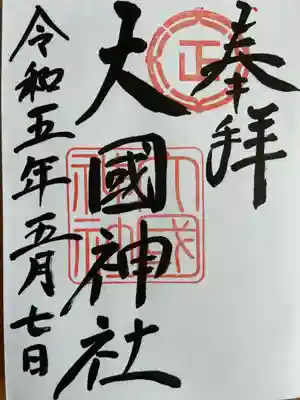 奉拝
正
大國神社
大國神社
令和五年五月七日